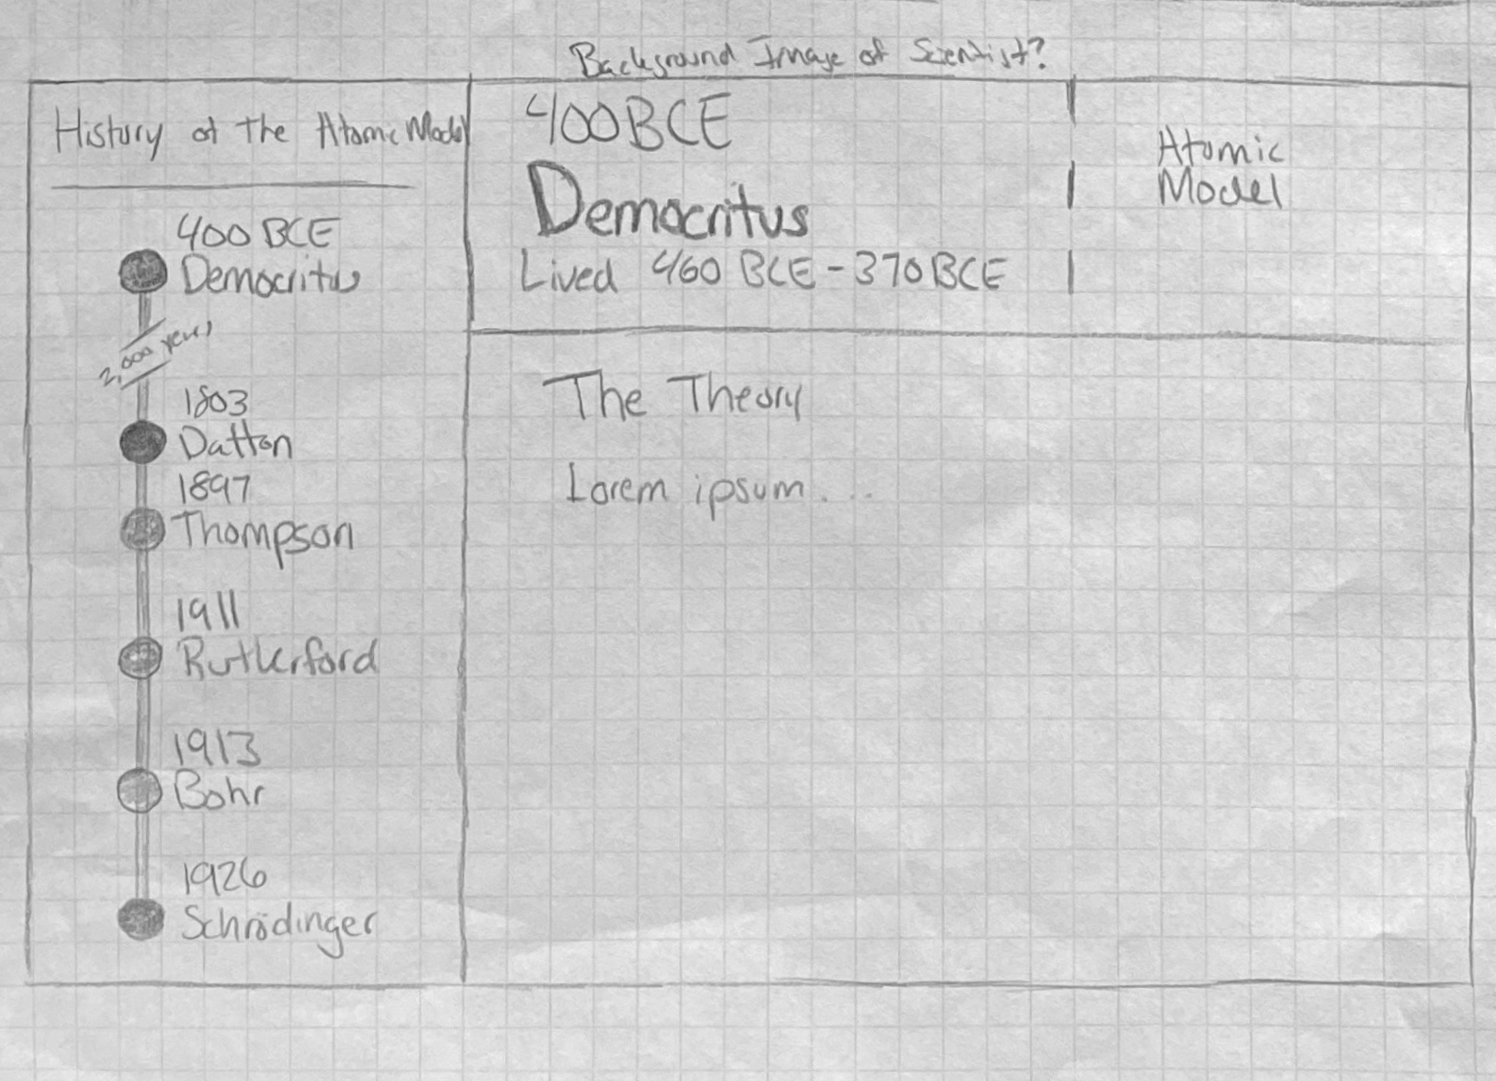 Background Image of Scientist?
History of the Atomic Model
400 BCE
Democritus
2,000 years
1803
Dalton
1897
Thompson
1911
Rutherford
1913
Bohr
1926
Schrödinger
400 BCE
Democritus
Lived 460 BCE - 370 BCE
Atomic
Model
The Theory
Lorem ipsum...